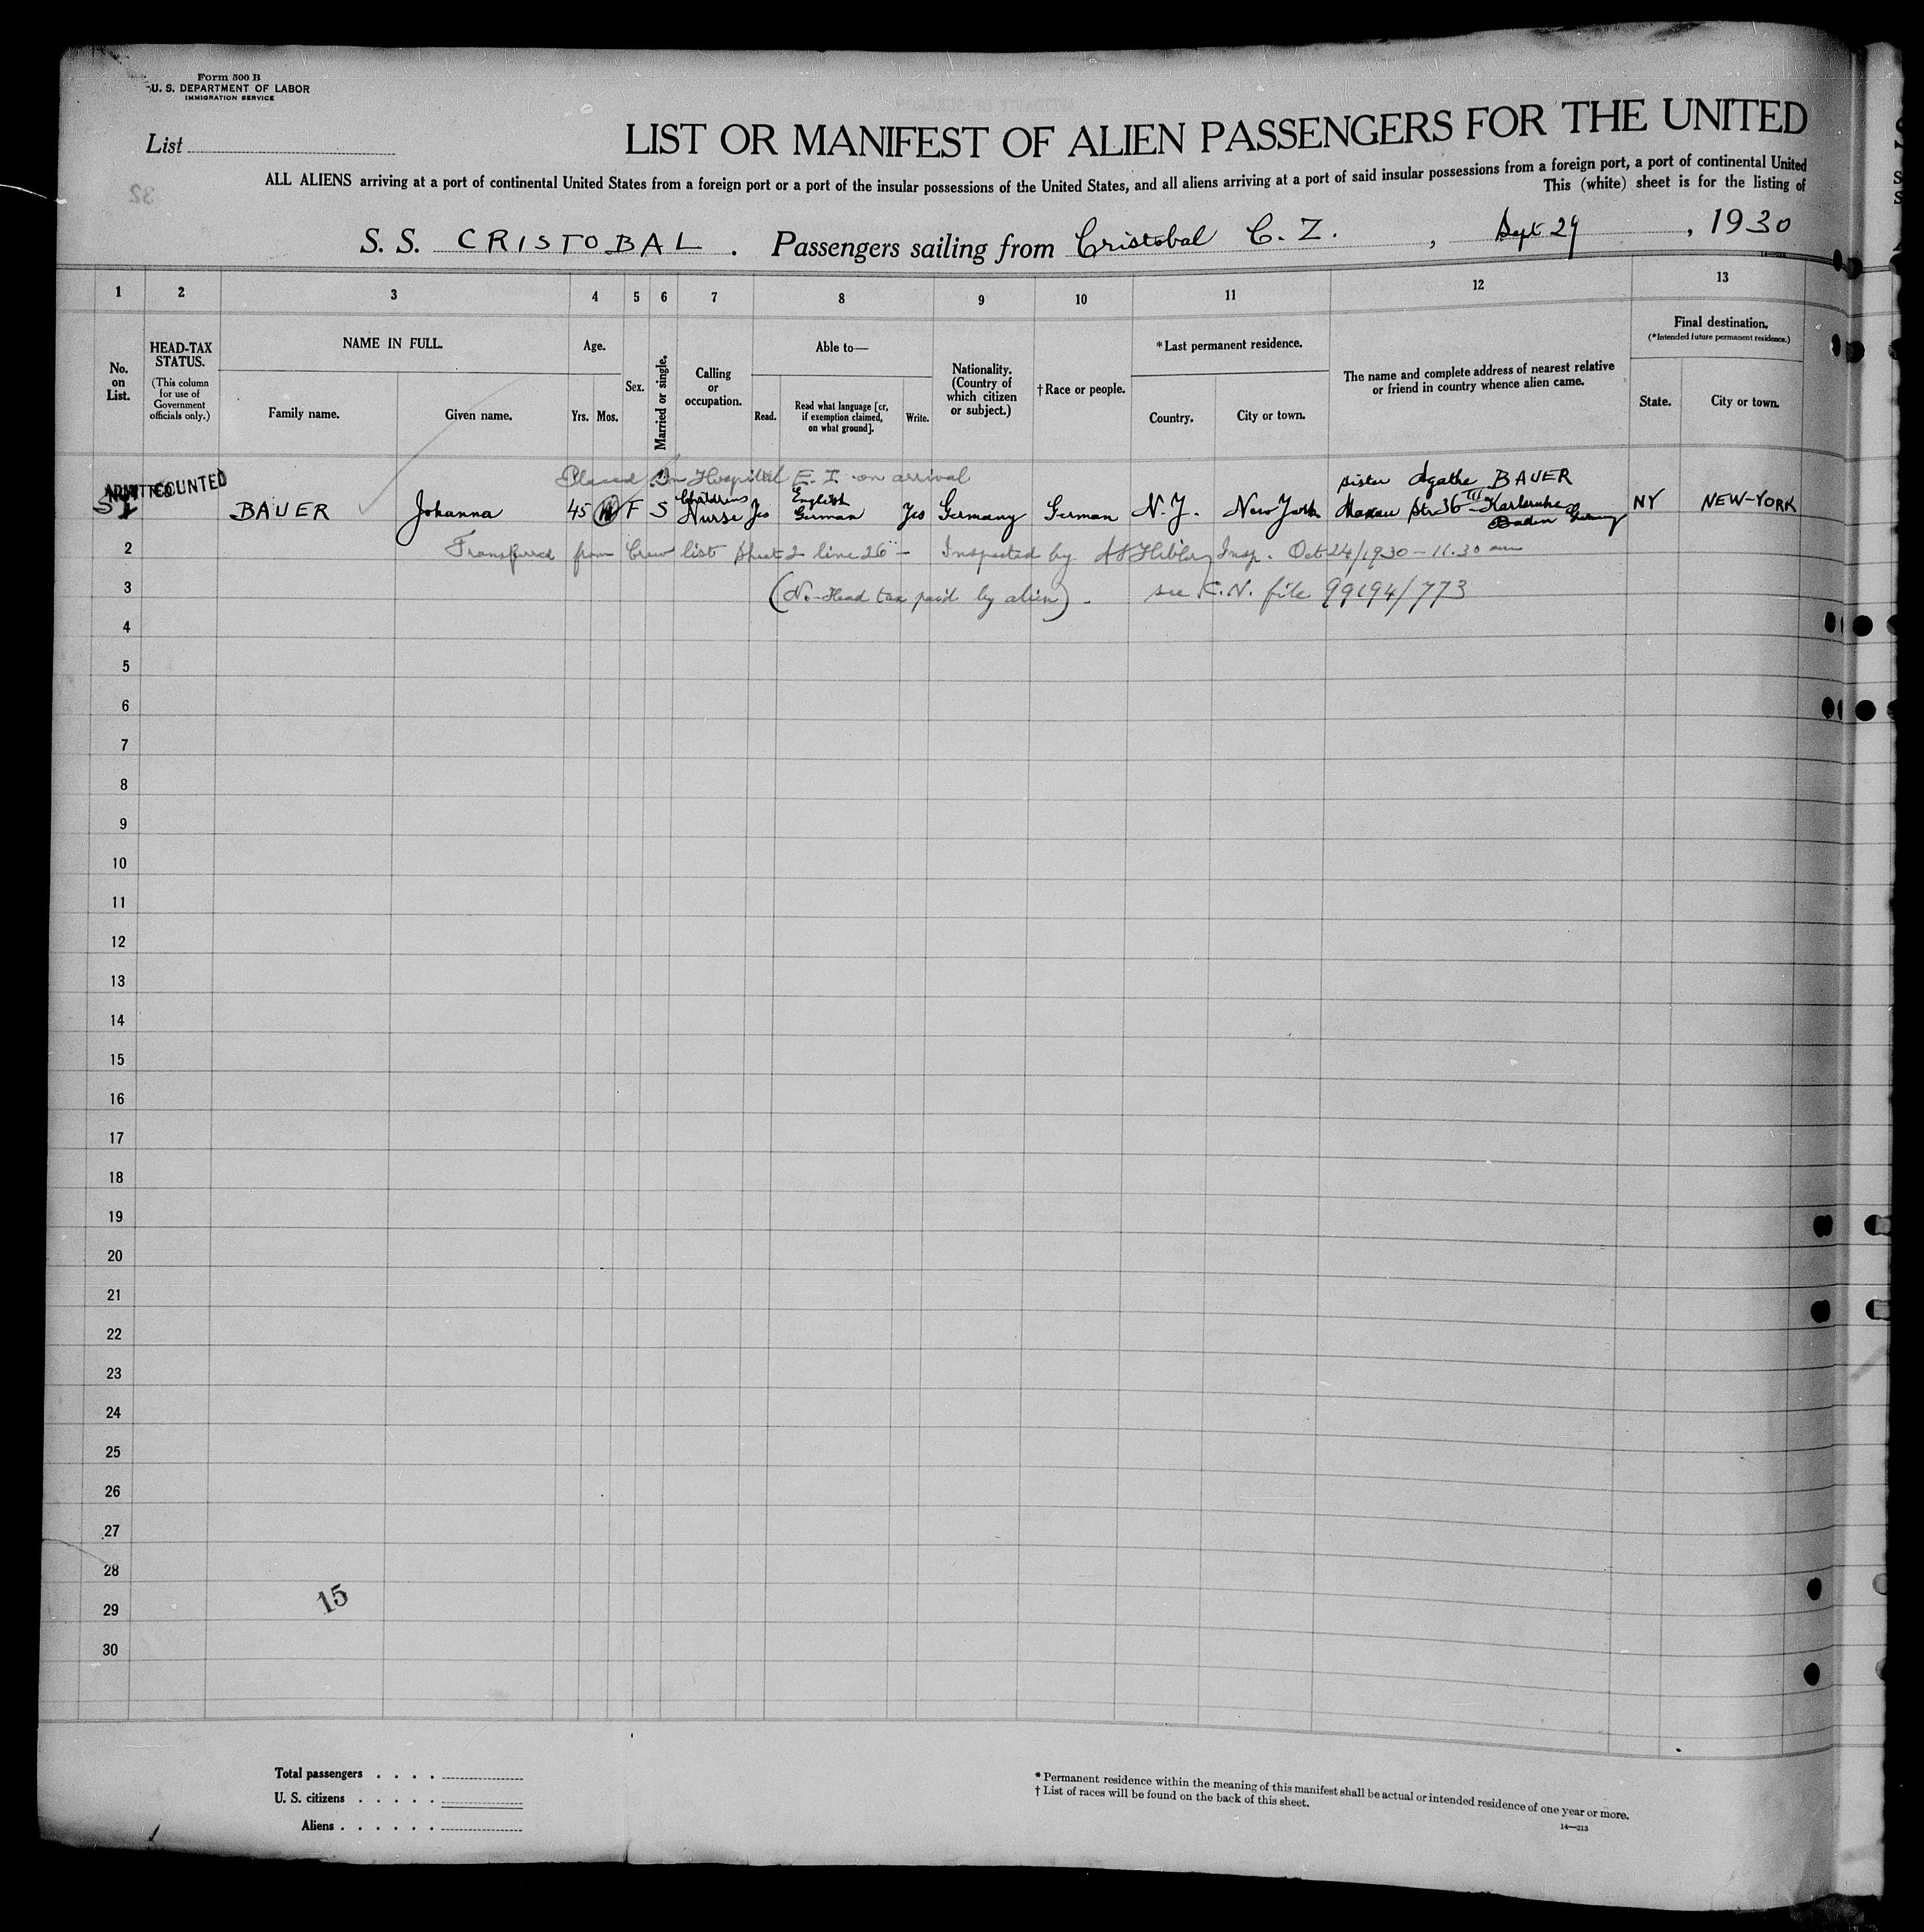 Form 500 B
U. S. DEPARTMENT OF LABOR
IMMIGRATION SERVICE
List
LIST OR MANIFEST OF ALIEN PASSENGERS FOR THE UNITED
ALL ALIENS arriving at a port of continental United States from a foreign port or a port of the insular possessions of the United States, and all aliens arriving at a port of said insular possessions from a foreign port, a port of continental United
This (white) sheet is for the listing of
32
S. S. CRISTOBAL . Passengers sailing from Cristobal C. Z. , Sept 29 , 1930
1 2 3 4 5 6 7 8 9 10 11 12 13
No. on List.
HEAD-TAX STATUS.
(This column for use of Government officials only.)
NAME IN FULL.
Family name. Given name.
Age.
Yrs. Mos.
Sex.
Married or single.
Calling or occupation.
Able to—
Read. Read what language [or, if exemption claimed, on what ground]. Write.
Nationality. (Country of which citizen or subject.)
† Race or people.
*Last permanent residence.
Country. City or town.
The name and complete address of nearest relative or friend in country whence alien came.
Final destination.
(*Intended future permanent residence.)
State. City or town.
Placed in Hospital E. I. on arrival
ADMITTED COUNTED
1 BAUER Johanna 45 F S Childrens Nurse Yes English German Yes Germany German N.Y. New York sister Agatha BAUER Maxau Str 36 III Karlsruhe Baden Germany NY NEW-YORK
2 Transferred from Crew list sheet 2 line 26 - Inspected by Insp. Oct 24/1930 - 11.30 am
3 (No Head tax paid by alien) - see C.N. file 99194/773
4
5
6
7
8
9
10
11
12
13
14
15
16
17
18
19
20
21
22
23
24
25
26
27
28
29
30
15
Total passengers . . . .
U. S. citizens . . . . .
Aliens . . . . . .
* Permanent residence within the meaning of this manifest shall be actual or intended residence of one year or more.
† List of races will be found on the back of this sheet.
14—213